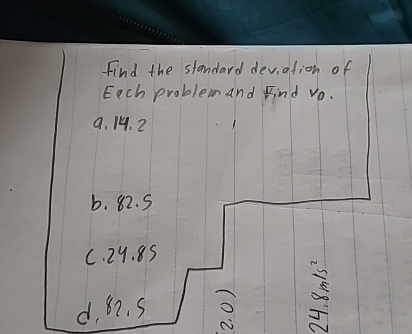 Find the standard deviation of
Each problem and Find vo.
a. 14.2
b. 82.5
c. 24.85
d. 82.5
2.0)
24.8 m/s²